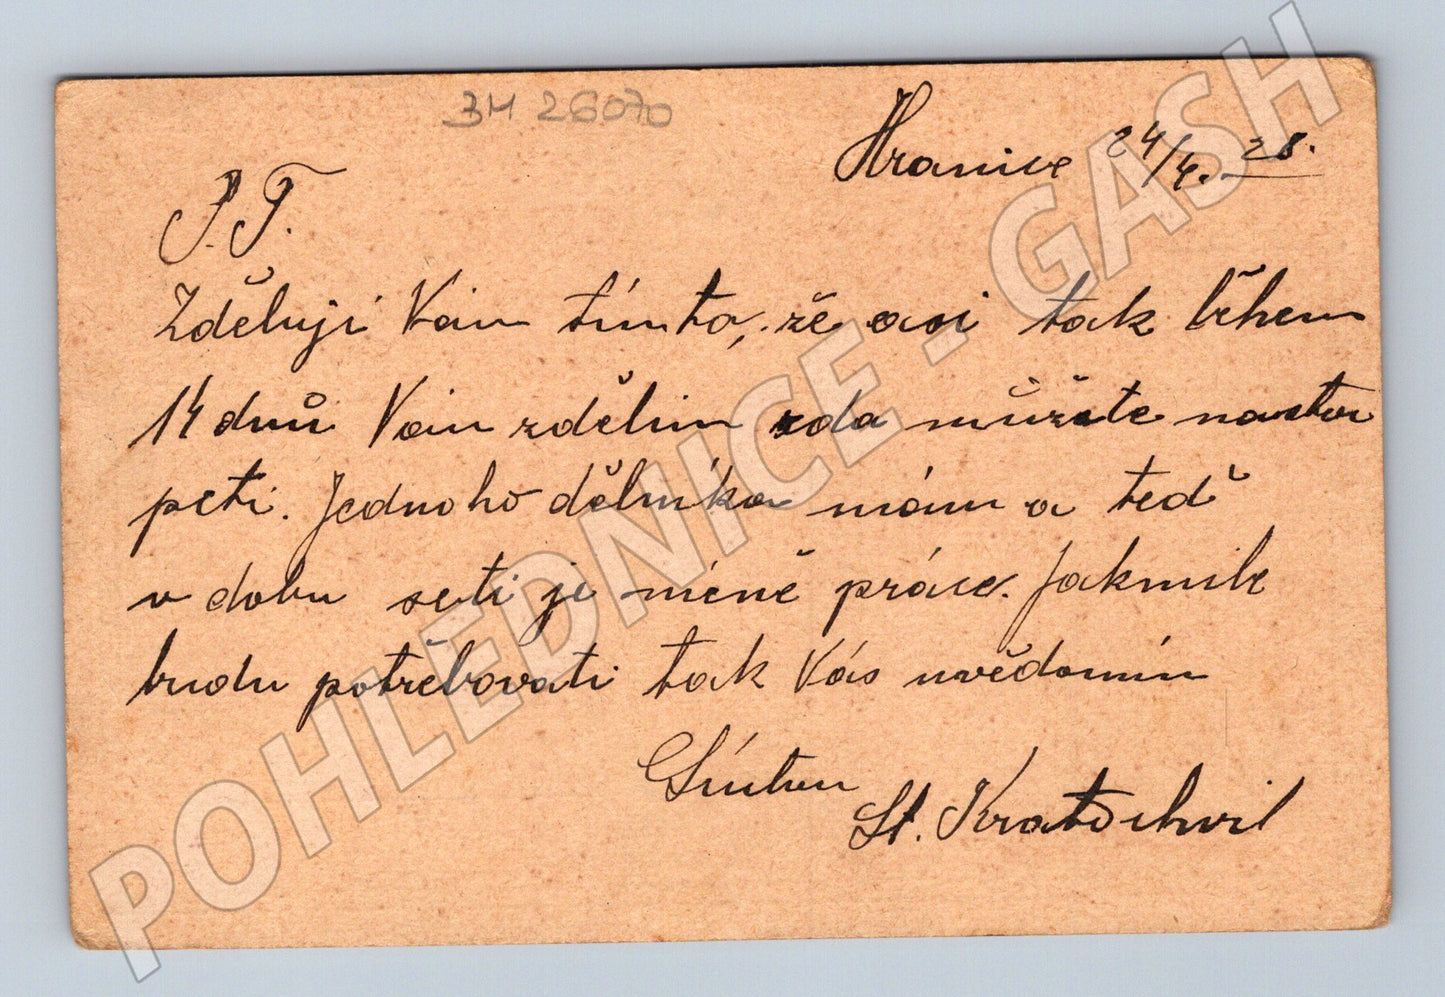 3M 26070
Hranice 24/4. 28.
P. T.
Zděluji Vám tímto, že asi tak během
14 dnů Vám zdělím zda můžete nastou
peti. Jednoho dělníka mám a teď
v dobu setí je méně práce. Jakmile
budu potřebovati tak Vás uvědomím
St. Kratochvil
POHLEDNICE - GASH